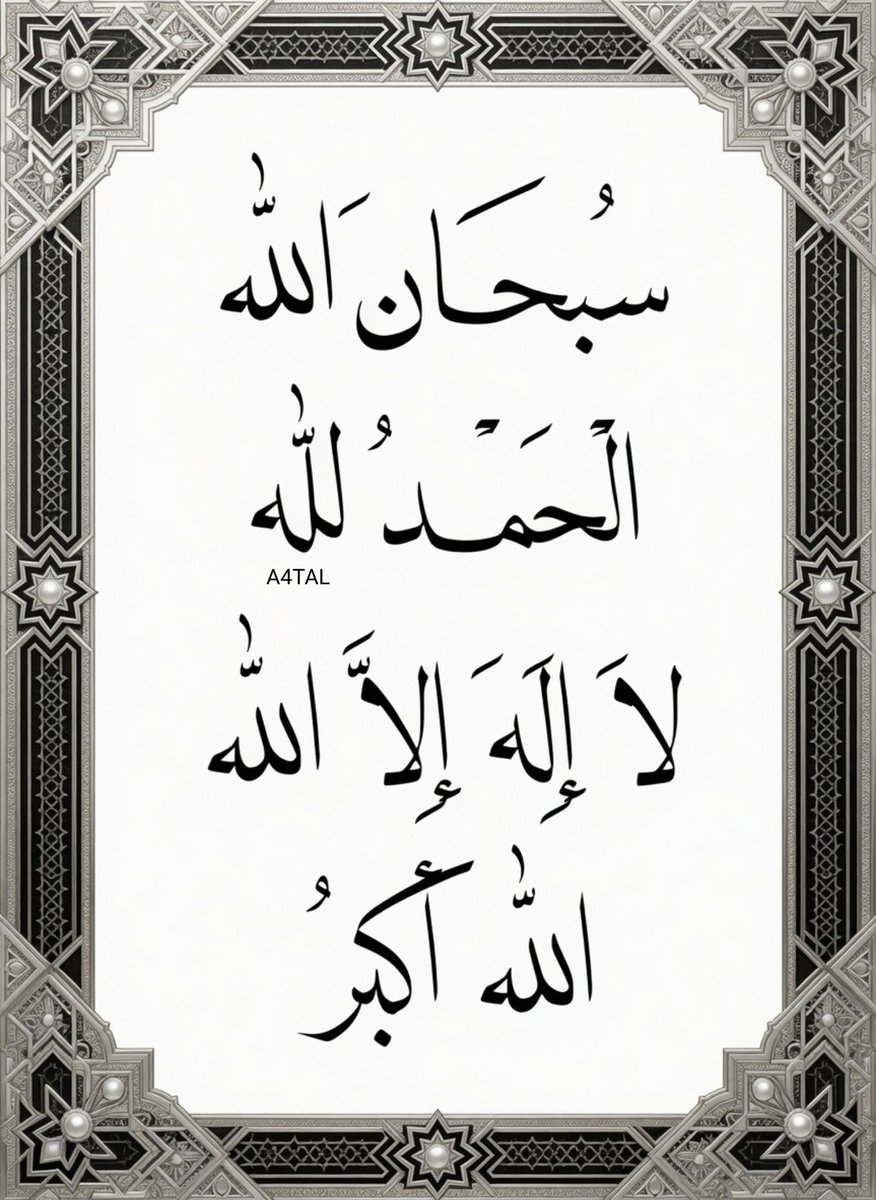 سُبحَان َالله
الْحَمْدُ لله
A4TAL
لاَ إِلَهَ إِلاَّ الله
الله أَكبرُ